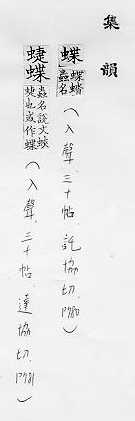 集韻
蝶 蝶 蟲名 (入聲 三十帖 託協切 P780)
蜨蝶 蟲名說文蛺蜨也或作蝶 (入聲 三十帖 達協切 P781)